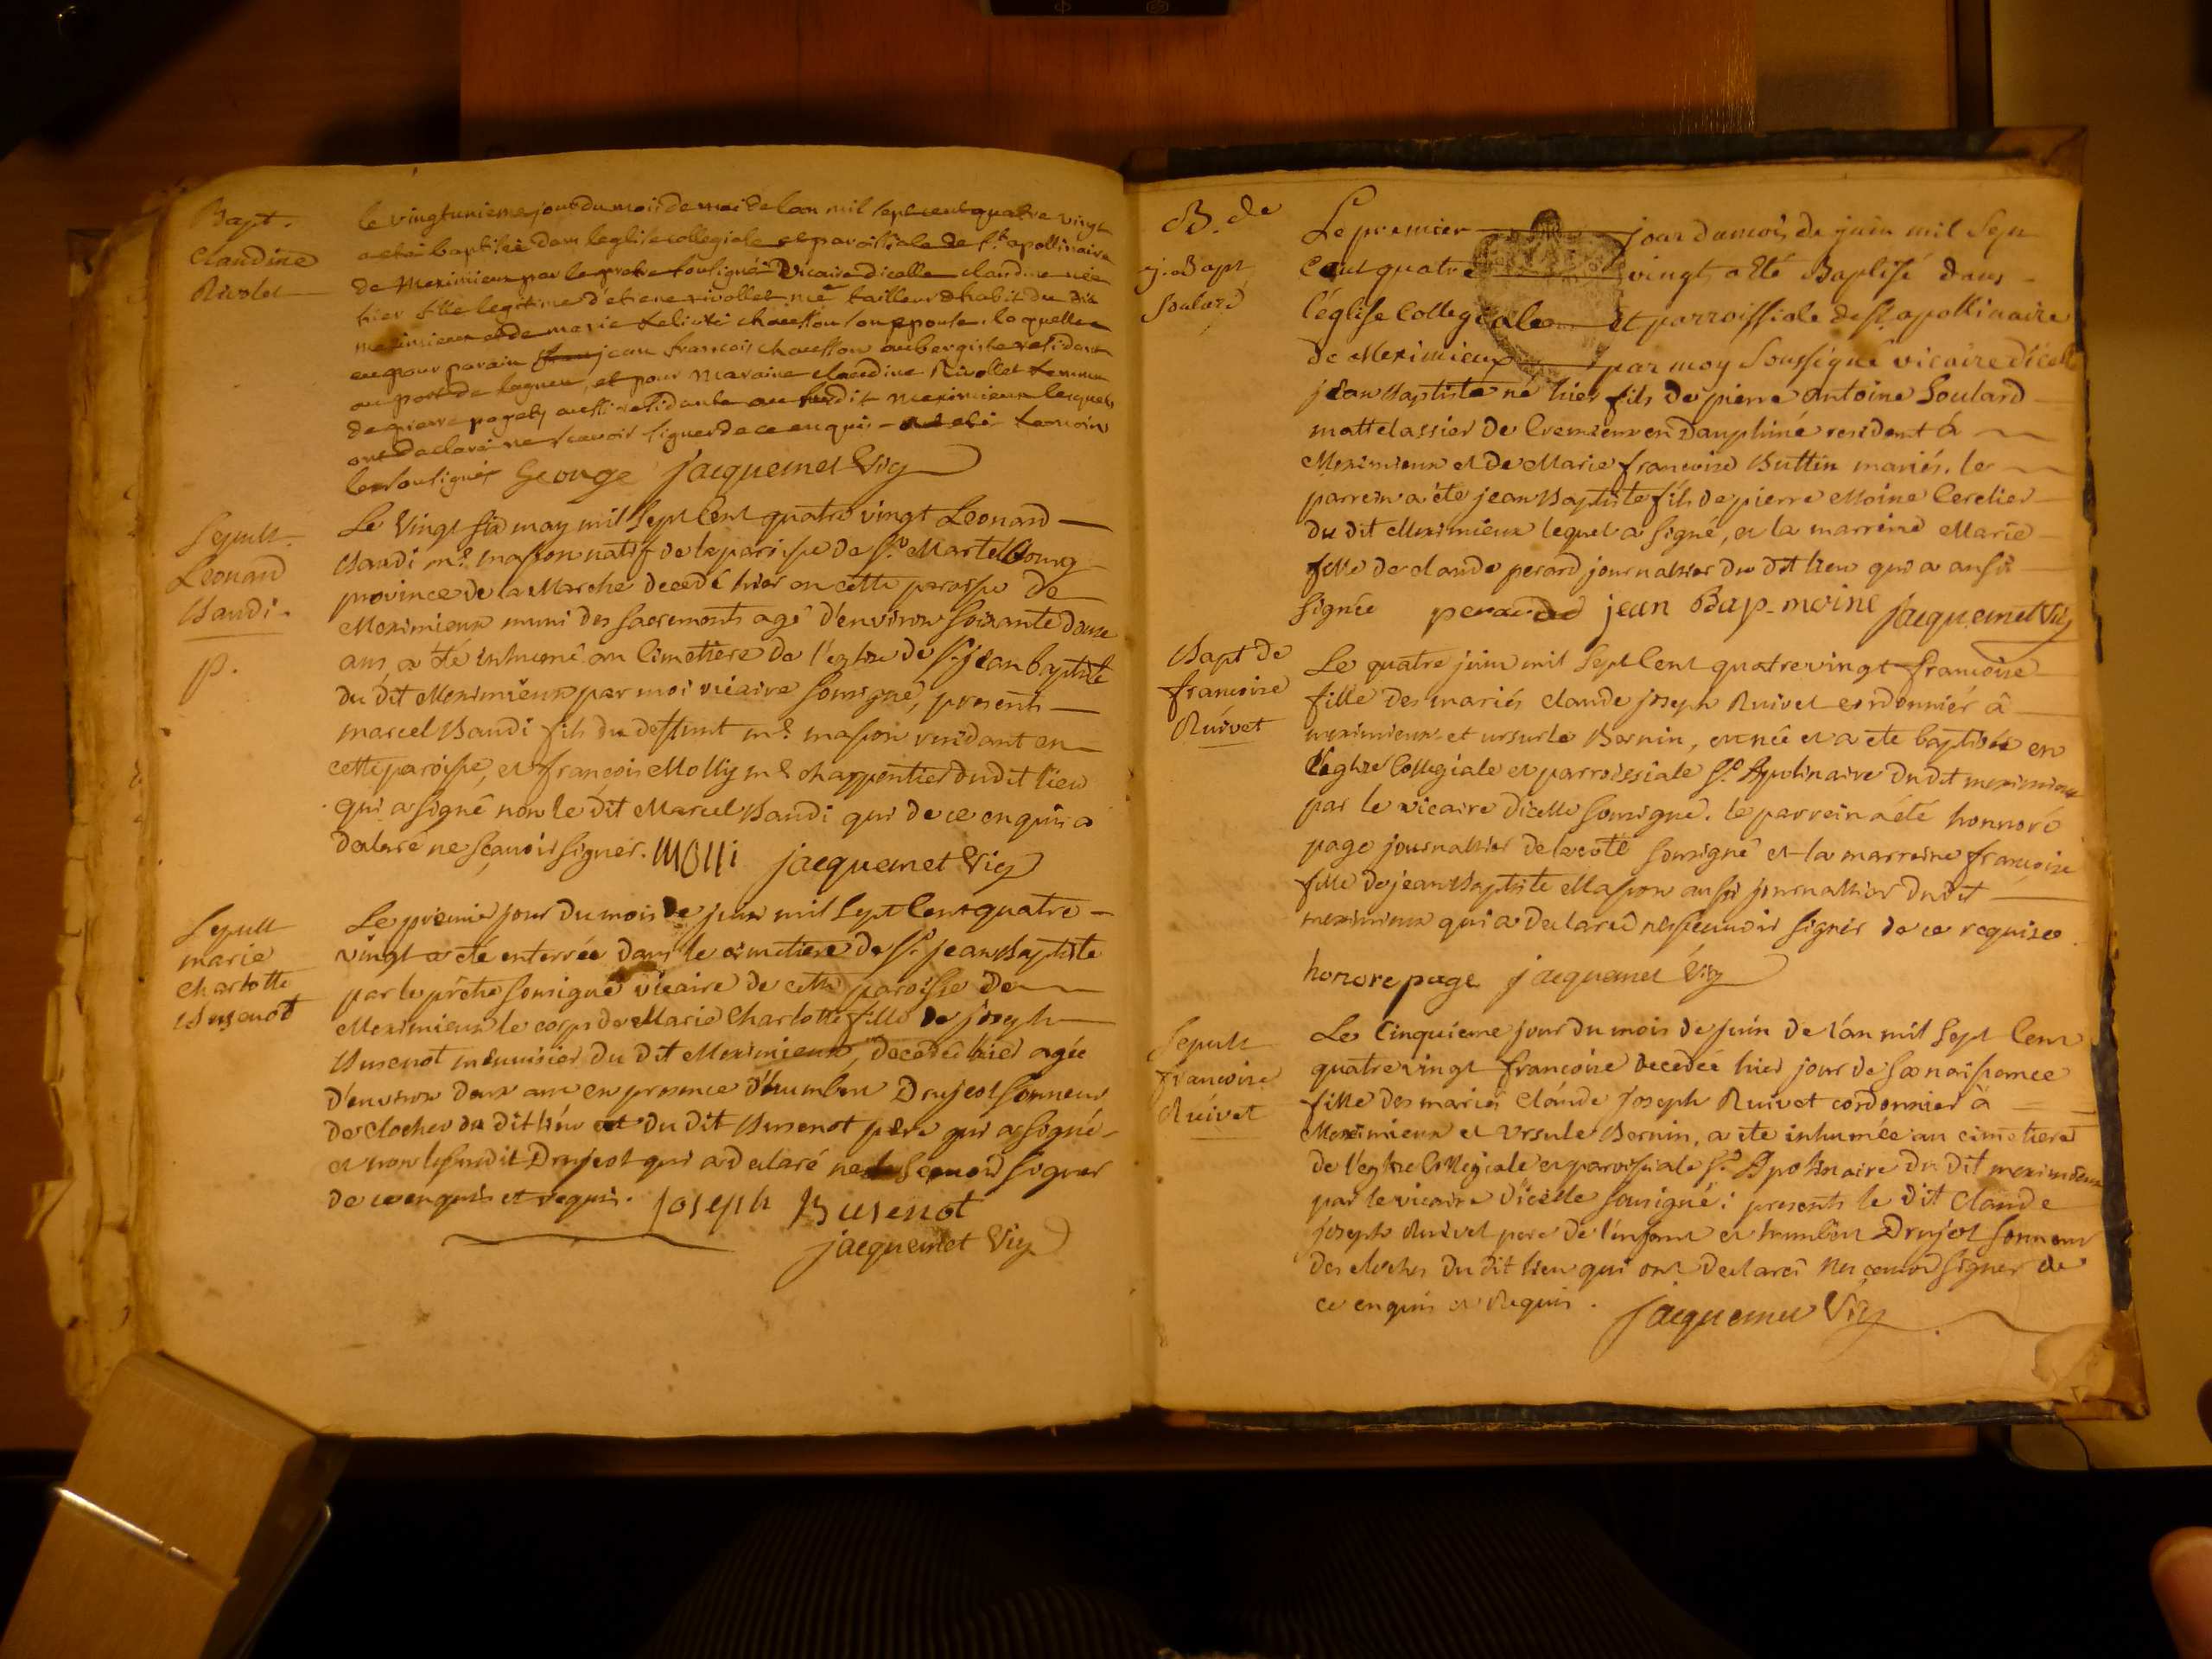 Bapt.
Claudine
Rivolet
le vingtunieme jour du mois de mai de lan mil sept cent quatre vingt
a eté baptisée dans leglise collegiale et paroissiale de st apollinaire
de Meximieux par le pretre soussigné Vicaire dicelle claudine née
hier fille legitime d'etiene rivollet me tailleur dhabit du dit
meximieux et de marie chausson son epouse. la quelle
eu pour parain jean francois chausson aubergiste residant
au port de lagneu, et pour Maraine claudine Rivollet femme
de pierre pagets aussi residante au sudit meximieux lesquels
ont declaré ne scavoir signer de ce enquis temoins
les sousignés George jacquemet Vic
Sepult.
Leonard
Baudi.
p.
Le Vingt six may mil sept cent quatre vingt Leonard
Baudi me. masson natif de la paroisse de st Martel Bourg
province de la Marche decedé hier en cette paroisse de
Meximieux muni des sacrements agé d'environ soixante douze
ans a été inhumé au cimetiere de l'eglise de st jean baptiste
du dit Meximieux par moi vicaire sousigné, presents
marcel Baudi fils du deffunt me. masson residant en
cette paroisse, et françois Molly me charppentier dudit lieu
qui a signé non le dit Marcel Baudi qui de ce enquis a
declaré ne sçavoir signer. Molli jacquemet Vic
Sepult
marie
charlotte
Busenot
Le premie jour du mois de juin mil sept cent quatre
vingt a été enterrée dans le cimetiere de st jean Baptiste
par le prêtre sousigné vicaire de cette paroisse de
Meximieux le corps de Marie Charlotte fille de joseph
Busenot menuisier du dit Meximieux, decedée hier agée
d'environ deux ans en presence d'humbert Drujeot sonneur
de cloches du dit lieu et du dit Busenot pere qui a signé
et non le sudit Drujeot qui a declaré ne sçavoir signer
de ce enquis et requis. Joseph Busenot
jacquemet Vic
B. de
j. Bapt
Soulard
Le premier jour du mois de juin mil sept
cent quatre vingt a été Baptisé dans
l'église Collegiale et parroissiale de st. apollinaire
de Meximieux par moy soussigné vicaire dicelle
jean Baptiste né hier fils de pierre antoine Soulard
mattelassier de Cremieux en Dauphiné residant à
Meximieux et de Marie francoise Buttin mariés. le
parrein a été jean Baptiste fils de pierre Moine Cerclier
du dit Meximieux lequel a signé, et la marreine Marie
fille de claude perard journallier du dit lieu qui a aussi
signée perard jean Bap. moine jacquemet Vic
Bapt de
francoise
Ruivet
Le quatre juin mil sept cent quatrevingt francoise
fille des mariés claude joseph Ruivet cordonnier à
meximieux et ursurle Bernin, est née et a ete baptisée en
l'eglise Collegiale et parroissiale st. Appolinaire dudit meximieux
par le vicaire dicelle sousigné. le parrein a été honnoré
page journallier de la cote sousigné et la marreine françoise
fille de jean Baptiste Masson aussi journallier dudit
meximieux qui a declaré ne sçauvoir signer de ce requise.
honore page jacquemet Vic
Sepult
francoise
Ruivet
Le Cinquieme jour du mois de juin de l'an mil sept cent
quatre vingt francoise decedée hier jour de sa naissance
fille des mariés Claude Joseph Ruivet cordonnier à
Meximieux et Ursule Bernin, a ete inhumée au cimetiere
de l'eglise Collegiale et paroissiale st Apolinaire du dit meximieux
par le vicaire dicelle sousigné: presents le dit Claude
joseph Ruivet pere de l'enfant et humbert Drujot sonneur
des cloches du dit lieu qui ont declaré ne sçauvoir signer de
ce enquis et Requis. jacquemet Vic